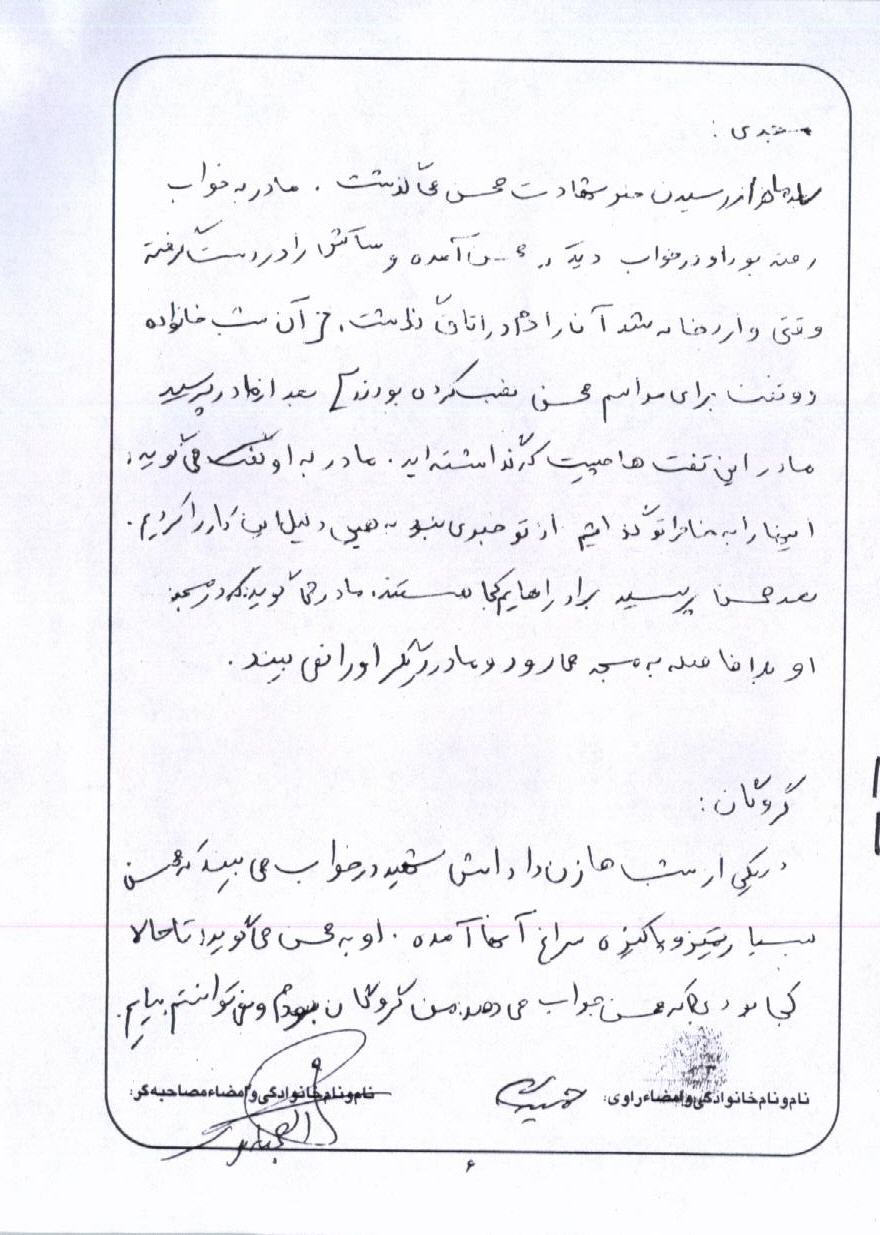 خبری :
از رسیدن خبر شهادت محسن می گذشت . مادر به خواب
رفته بود و در خواب دید که محسن آمده و ساکش را در دست گرفته
وقتی وارد خانه شد آن را دم در اتاق گذاشت، آن شب خانواده
دو تخت برای مراسم محسن نصب کرده بودند] بعد از مادر پرسید
مادر این تخت ها چیست که گذاشته اید. مادر به او می گوید:
اینها را به خاطر تو گذاشتیم از تو خبری نبود به همین دلیل این کار را کردیم.
بعد محسن پرسید برادرهایم کجا هستند، مادر می گوید: که در مسجد
او بلافاصله به مسجد می رود و مادر دیگر او را نمی بیند.
گروگان:
در یکی از شب ها زن داداش شهید در خواب می بیند که محسن
بسیار تمیز و پاکیزه سراغ آنها آمده . او به محسن می گوید: تا حالا
کجا بودی که محسن جواب می دهد: من گروگان بودم و نمی توانستم بیایم.
نام و نام خانوادگی و امضاء راوی:
نام و نام خانوادگی و امضاء مصاحبه گر:
۶